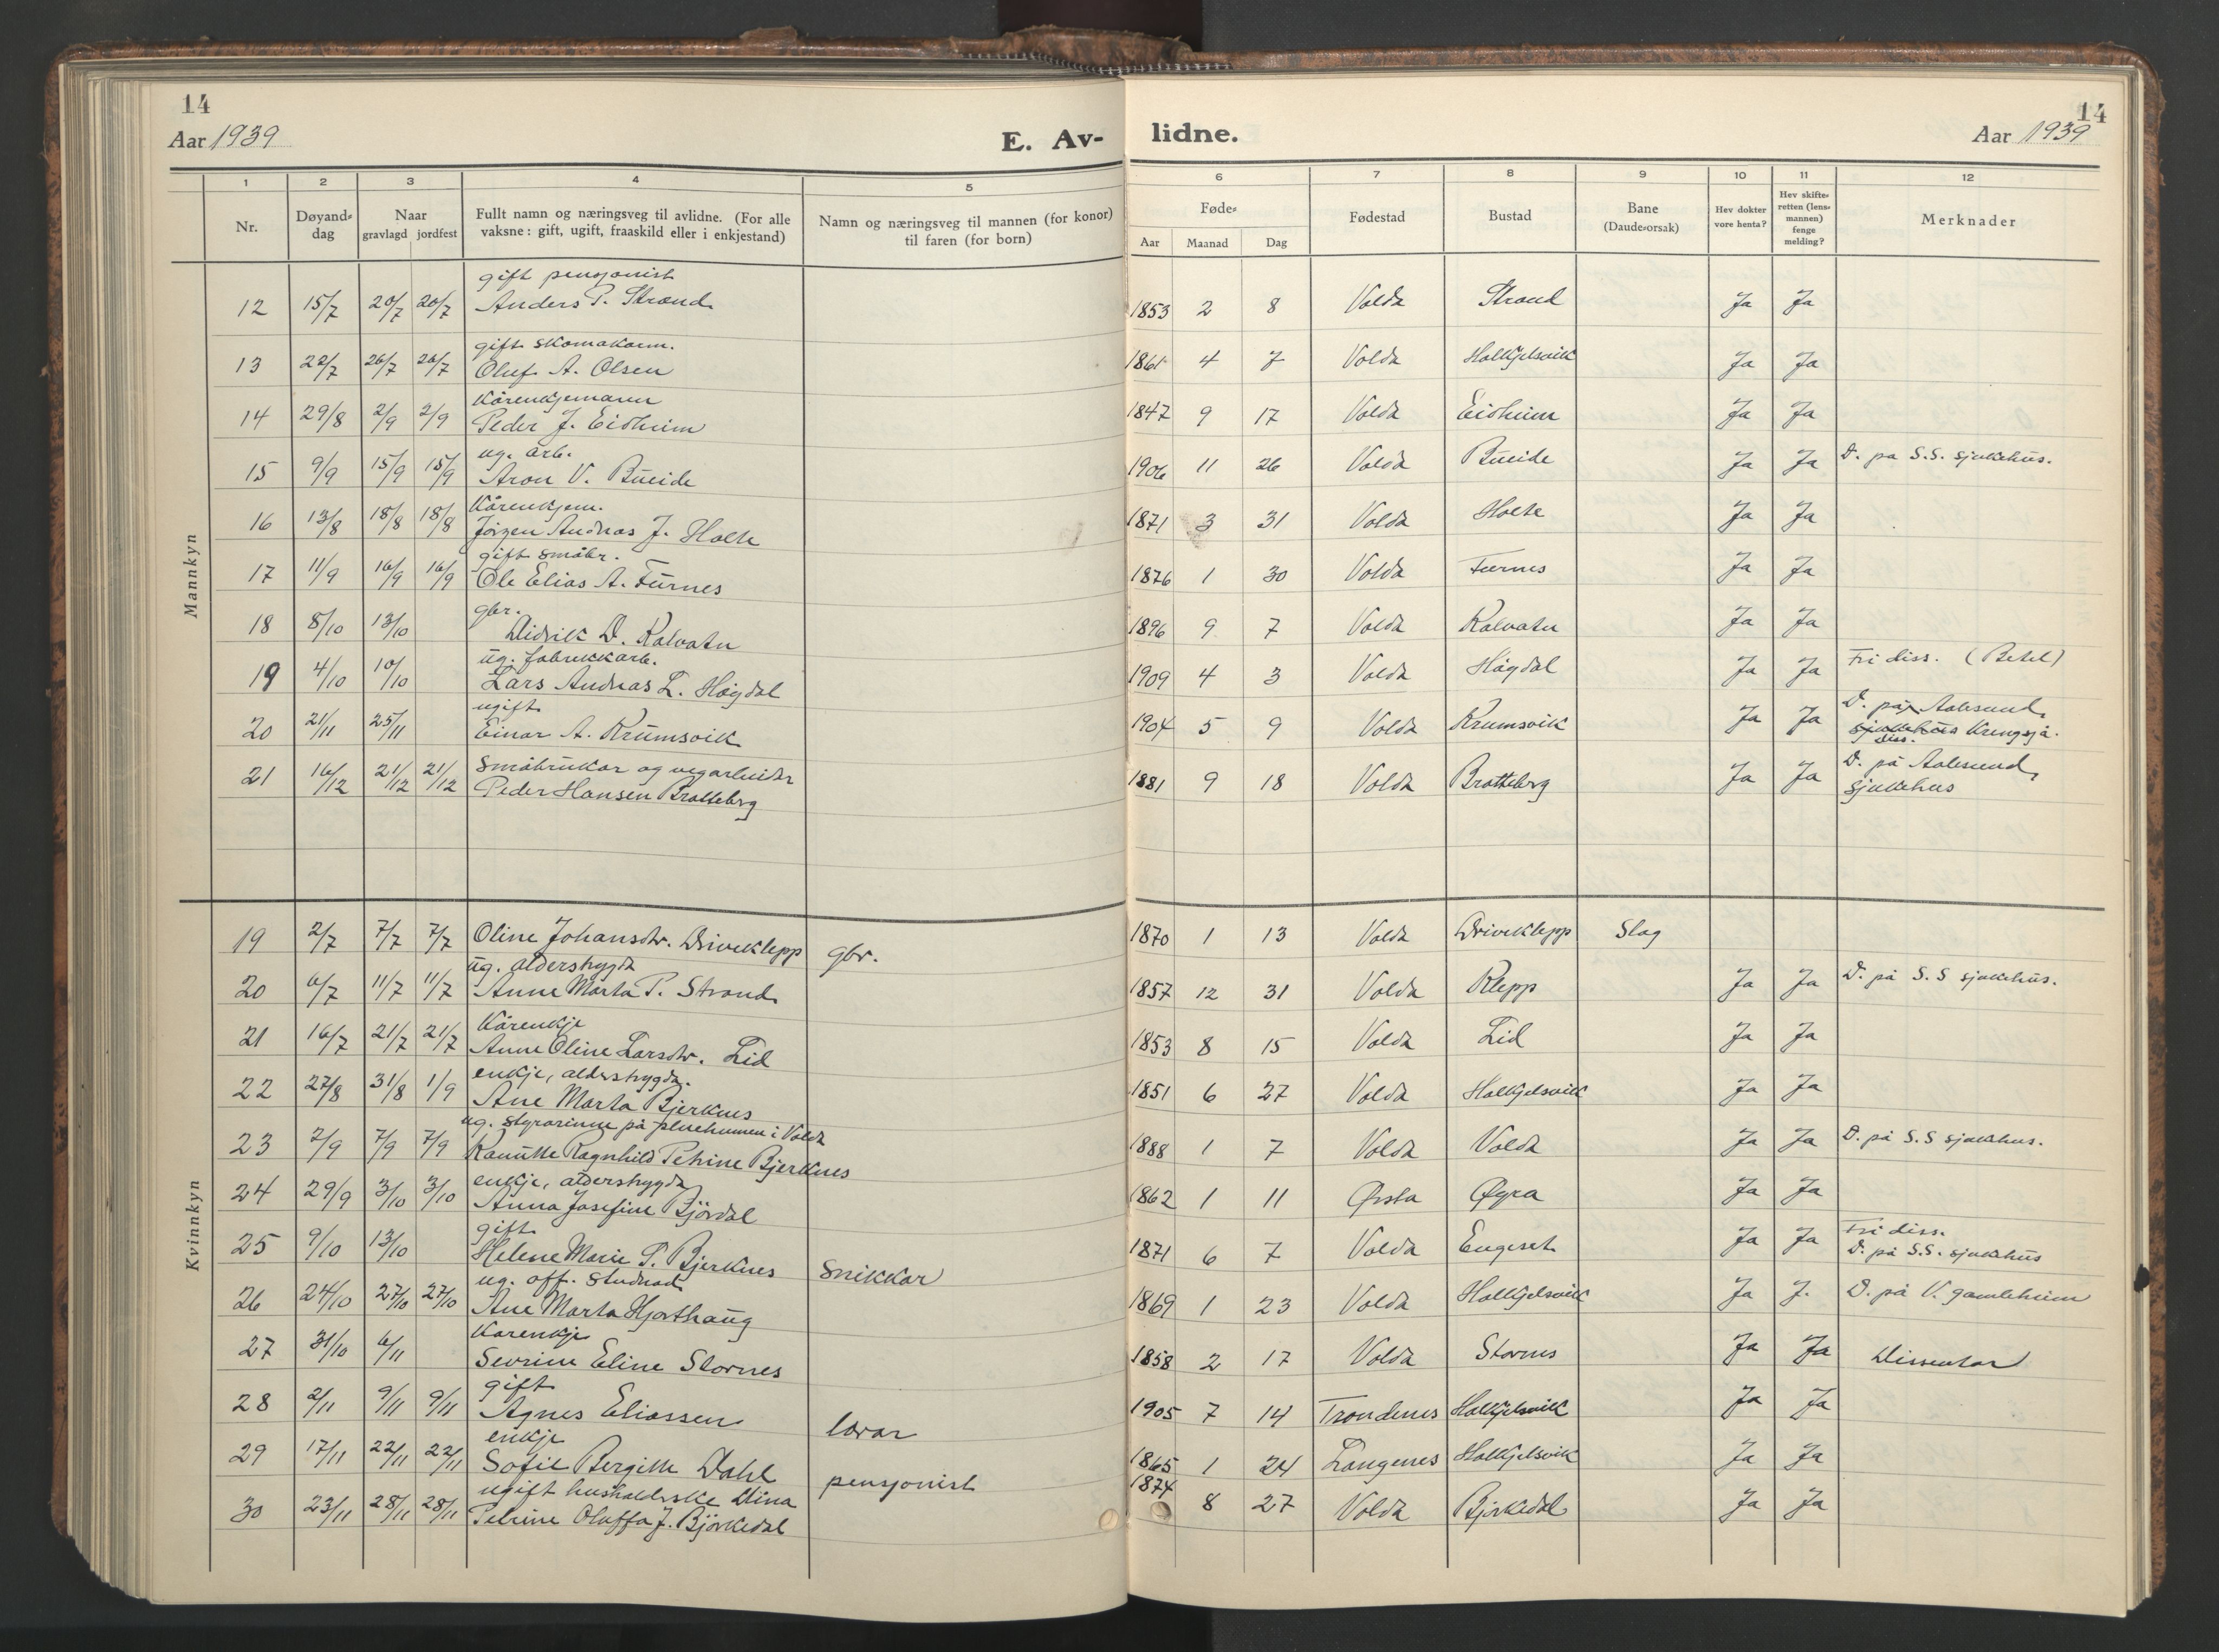 14
Aar 1939
E. Av-
lidne.
Aar 1939
14
1 2 3 4 5 6 7 8 9 10 11 12
Nr.
Døyand-dag
Naar
gravlagd jordfest
Fullt namn og næringsveg til avlidne. (For alle
vaksne: gift, ugift, fraaskild eller i enkjestand)
Namn og næringsveg til mannen (for konor)
til faren (for born)
Føde-
Aar Maanad Dag
Fødestad
Bustad
Bane
(Daude-orsak)
Hev dokter
vore henta?
Hev skifte-
retten (lens-
mannen)
fenge
melding?
Merknader
Mannkyn
gift pensjonist
12 15/7 20/7 20/7 Anders P. Strand 1853 2 8 Volda Strand Ja Ja
gift skomakarm.
13 22/7 26/7 26/7 Oluf A. Olsen 1861 4 7 Volda Halkjelsvik Ja Ja
Kårenkjemann
14 29/8 2/9 2/9 Peder J. Eidheim 1847 9 17 Volda Eidheim Ja Ja
ug. arb.
15 9/9 15/9 15/9 Aron V. Bueide 1906 11 26 Volda Bueide Ja Ja D. på S.S. sjukehus.
Kårenkjem.
16 13/8 18/8 18/8 Jørgen Andreas J. Holte 1871 3 31 Volda Holte Ja Ja
gift småbr.
17 11/9 16/9 16/9 Ole Elias A. Furnes 1876 1 30 Volda Furnes Ja Ja
gbr.
18 8/10 13/10 Didrik D. Kalvatn 1896 9 7 Volda Kalvatn Ja Ja
ug. fabrikkarb.
19 4/10 10/10 Lars Andreas L. Høgdal 1909 4 3 Volda Høgdal Ja Ja Fri diss. (Betel)
ugift
20 21/11 25/11 Einar A. Krumsvik 1904 5 9 Volda Krumsvik Ja Ja D. på Aalesund
sjukehus Krengsjå.
diss.
småbrukar og vegarbeidar
21 16/12 21/12 21/12 Peder Hansen Bratteberg 1881 9 18 Volda Bratteberg Ja Ja D. på Aalesund
sjukehus
Kvinnkyn
19 2/7 7/7 7/7 Oline Johansdtr. Driveklepp gbr. 1870 1 13 Volda Driveklepp Slag
ug. alderstrygda
20 6/7 11/7 11/7 Anne Marta P. Strand 1857 12 31 Volda Klepp Ja Ja D. på S.S sjukehus.
Kårenkje
21 16/7 21/7 21/7 Anne Oline Larsdtr. Lid 1853 8 15 Volda Lid Ja Ja
enkje, alderstrygda.
22 27/8 31/8 1/9 Ane Marta Bjerknes 1851 6 27 Volda Halkjelsvik Ja Ja
ug. styrarinne på pleiehumen i Volda
23 2/9 7/9 7/9 Kanutte Ragnhild Petrine Bjerknes 1888 1 7 Volda Volda Ja Ja D. på S.S sjukehus.
enkje, alderstrygda
24 29/9 3/10 3/10 Anna Josefine Bjørdal 1862 1 11 Ørsta Øyra Ja Ja
gift
25 9/10 13/10 Helene Marie P. Bjerknes Snikkar 1871 6 7 Volda Engeset Ja Ja Fri diss.
D. på S.S. sjukehus
ug. off. studnad
26 24/10 27/10 27/10 Ane Marta Hjorthaug 1869 1 23 Volda Halkjelsvik Ja J. D. på V. gamleheim
Kårenkje
27 31/10 6/11 Sevrine Eline Stornes 1858 2 17 Volda Stornes Ja Ja Dissentar
gift
28 2/11 9/11 9/11 Agnes Eliassen lærar 1905 7 14 Trondenes Halkjelsvik Ja Ja
enkje
29 17/11 22/11 22/11 Sofie Bergitte Dahl pensjonist 1865 1 24 Langenes Halkjelsvik Ja Ja
ugift husholderske Dina
30 23/11 28/11 28/11 Petrine Oluffa J. Bjørkedal 1874 8 27 Volda Bjørkedal Ja Ja